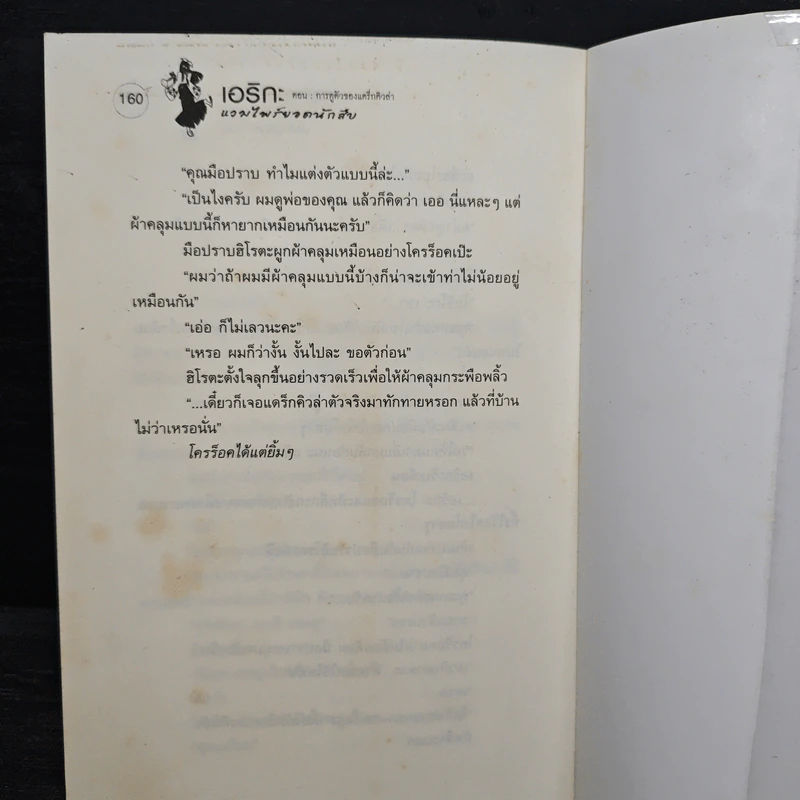 160
เอริกะ ตอน : การดูตัวของแดร็กคิวล่า
แวมไพร์ยอดนักสืบ
“คุณมือปราบ ทำไมแต่งตัวแบบนี้ล่ะ...”
“เป็นไงครับ ผมดูพ่อของคุณ แล้วก็คิดว่า เออ นี่แหละๆ แต่
ผ้าคลุมแบบนี้ก็หายากเหมือนกันนะครับ”
มือปราบฮิโรตะผูกผ้าคลุมเหมือนอย่างโครร็อคเป๊ะ
“ผมว่าถ้าผมมีผ้าคลุมแบบนี้บ้างก็น่าจะเข้าท่าไม่น้อยอยู่
เหมือนกัน”
“เอ่อ ก็ไม่เลวนะคะ”
“เหรอ ผมก็ว่างั้น งั้นไปละ ขอตัวก่อน”
ฮิโรตะตั้งใจลุกขึ้นอย่างรวดเร็วเพื่อให้ผ้าคลุมกระพือพลิ้ว
“...เดี๋ยวก็เจอแดร็กคิวล่าตัวจริงมาทักทายหรอก แล้วที่บ้าน
ไม่ว่าเหรอนั่น”
โครร็อคได้แต่ยิ้มๆ